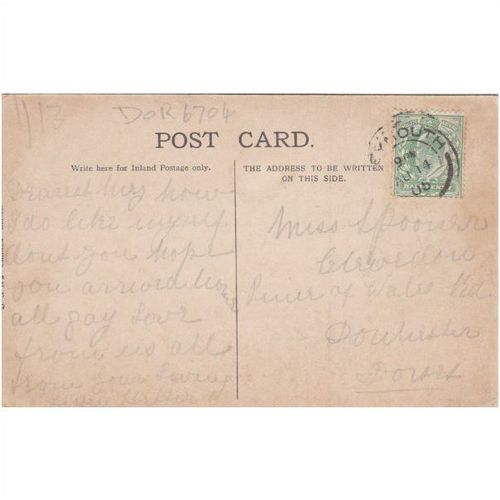 1/13
DOR 6704
POST CARD.
Write here for Inland Postage only.
THE ADDRESS TO BE WRITTEN
ON THIS SIDE.
MOUTH
05
Dearest how
I do like myself
dont you hope
you arrived
all gay love
from us all
from your loving
Miss Spooner
Clevedon
Prince of Wales Rd
Dorchester
Dorset